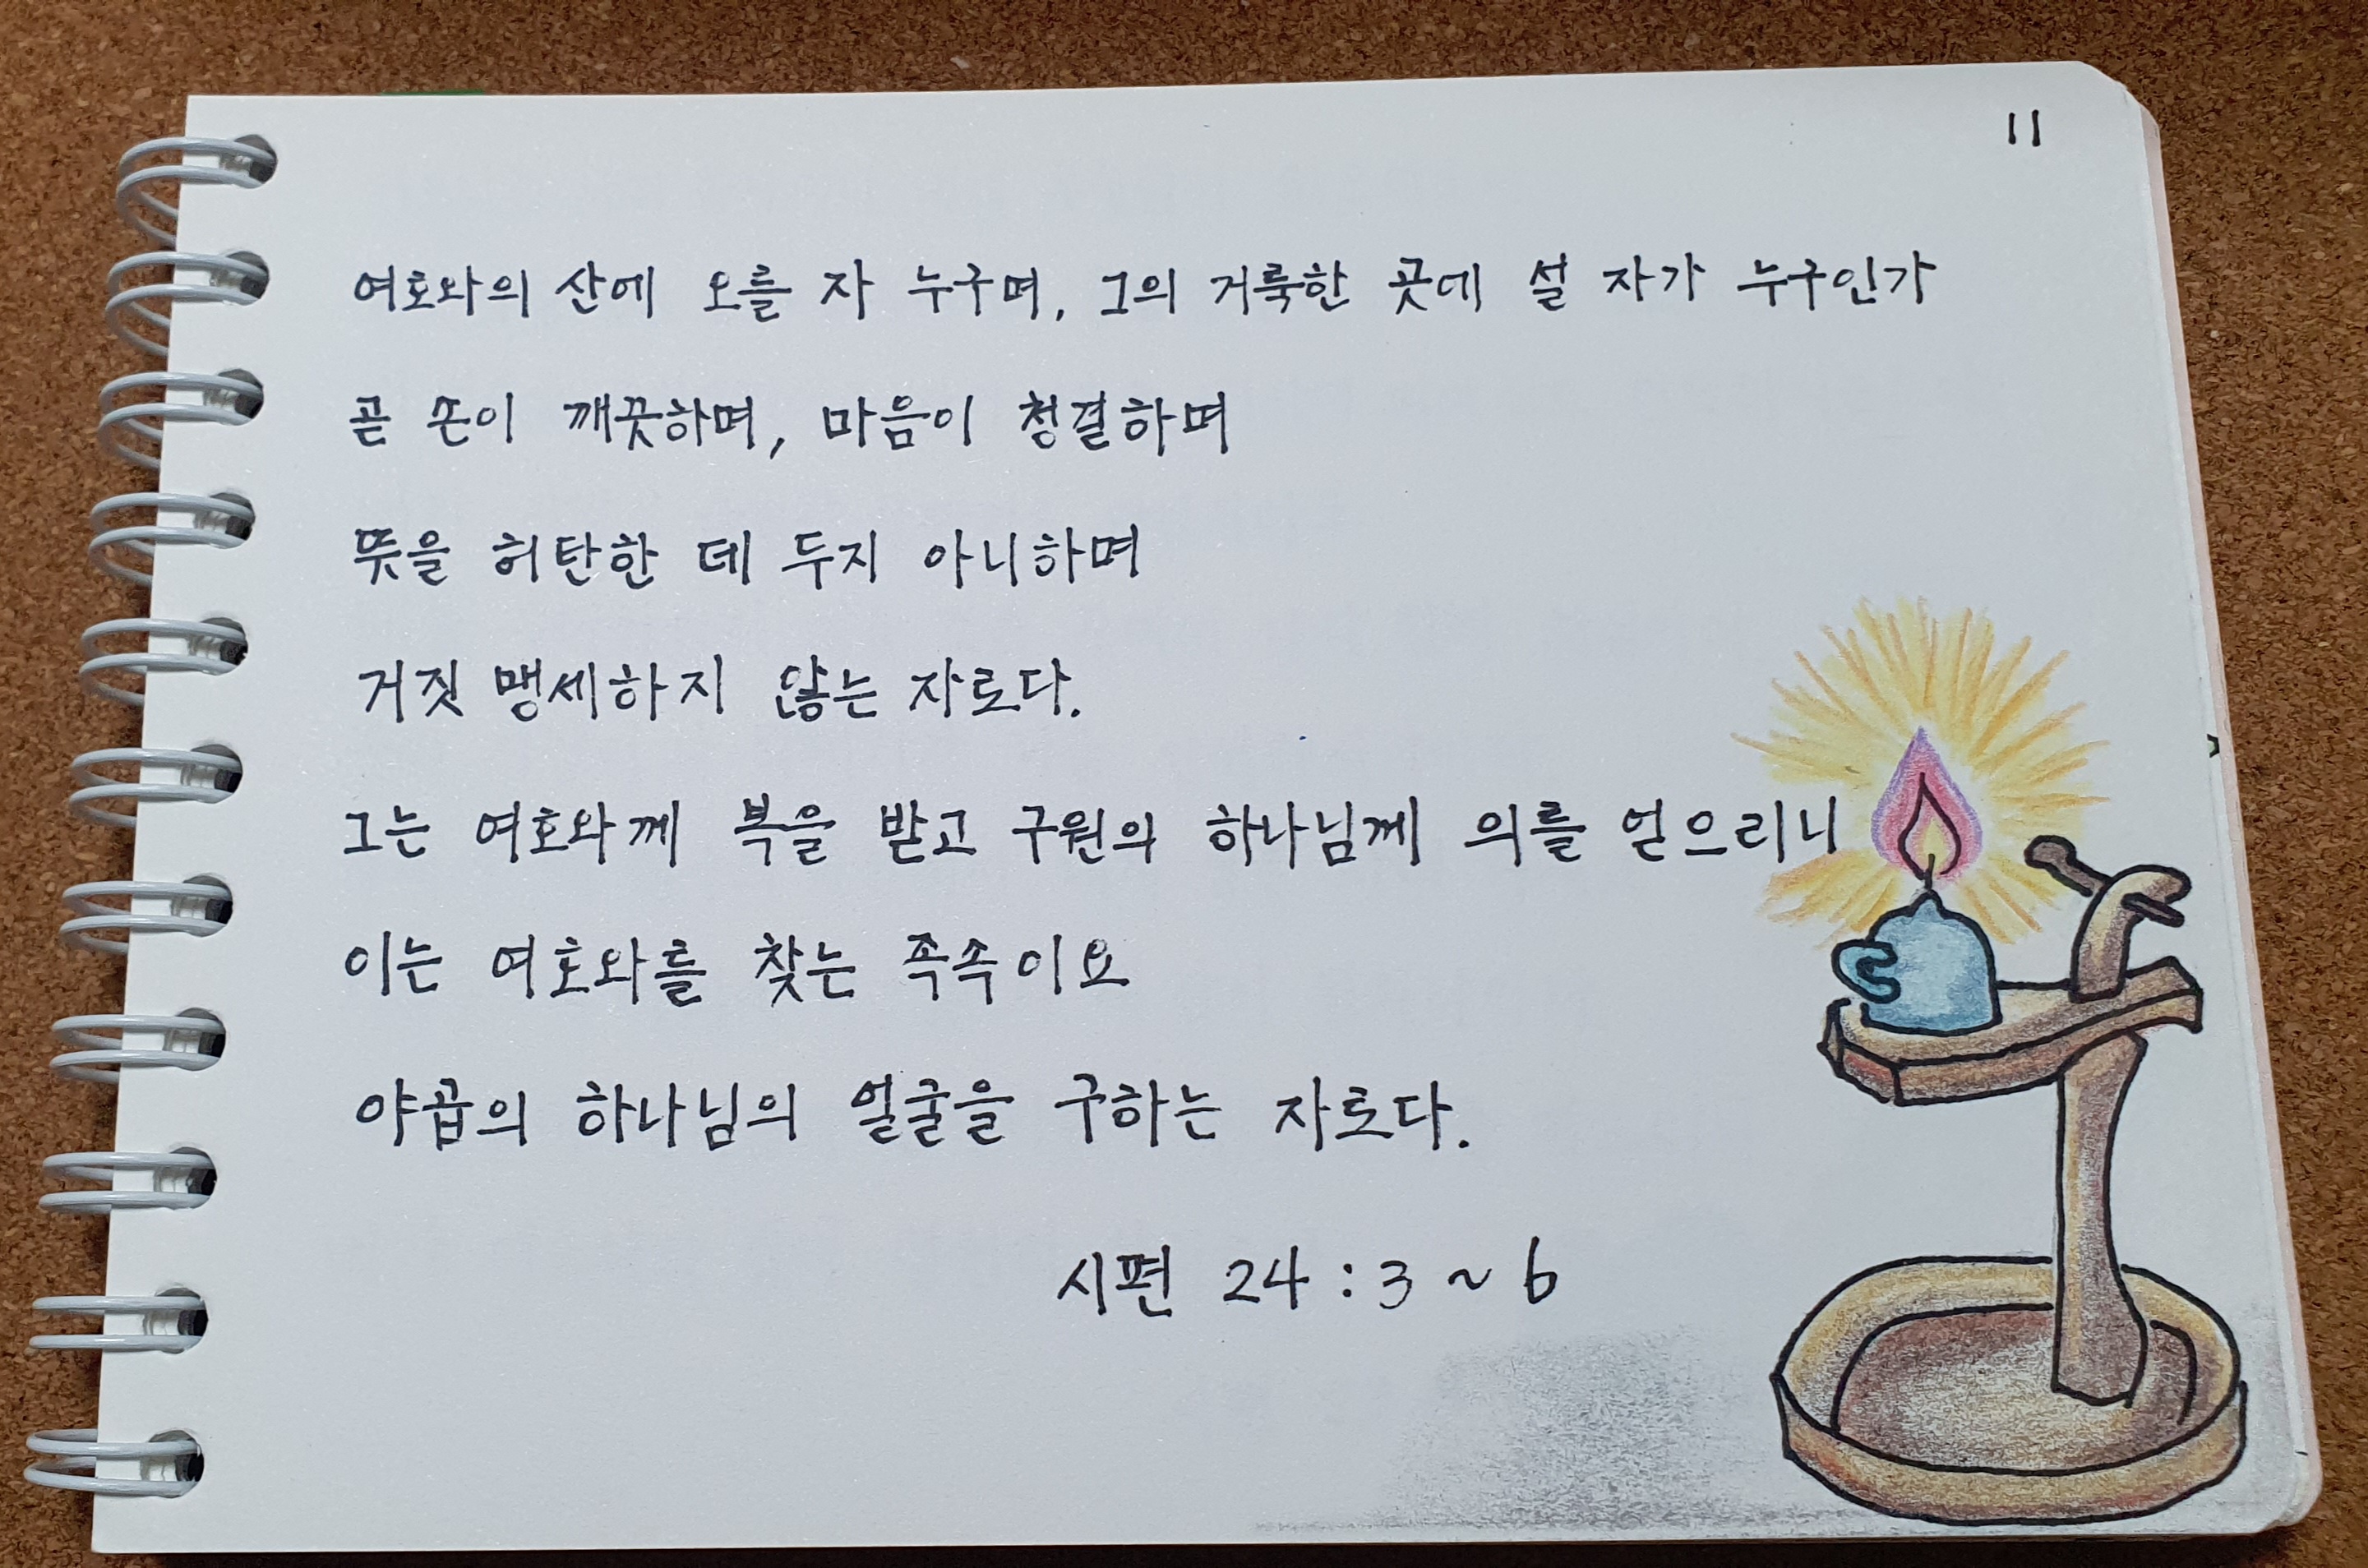 11
여호와의 산에 오를 자 누구며, 그의 거룩한 곳에 설 자가 누구인가
곧 손이 깨끗하며, 마음이 청결하며
뜻을 허탄한 데 두지 아니하며
거짓 맹세하지 않는 자로다.
그는 여호와께 복을 받고 구원의 하나님께 의를 얻으리니
이는 여호와를 찾는 족속이요
야곱의 하나님의 얼굴을 구하는 자로다.
시편 24 : 3 ~ 6